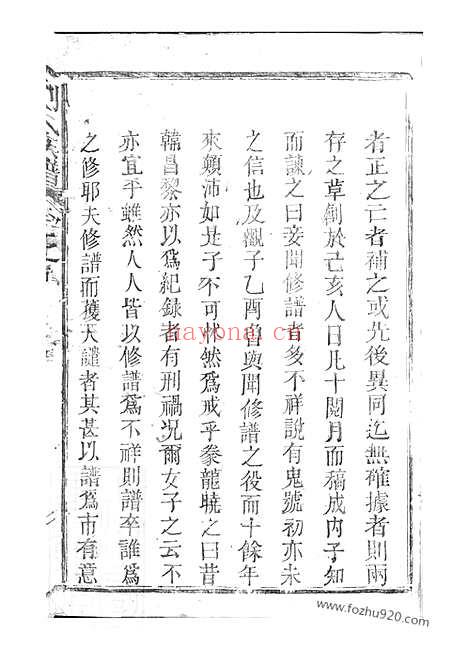 者正之亡者補之或先後異同迄無確據者則兩
存之草創於己亥人日凡十閱月而稿成內子知
而諫之曰妾聞修譜者多不祥說有鬼號初亦未
之信也及觀子乙酉曾與聞修譜之役而十餘年
來顛沛如是子不可惕然爲戒乎豢龍曉之曰昔
韓昌黎亦以爲紀錄者有刑禍况爾女子之云不
亦宜乎雖然人人皆以修譜爲不祥則譜卒誰爲
之修耶夫修譜而獲天譴者其甚以譜爲市有意
hayona.cn
www.fozhu920.com